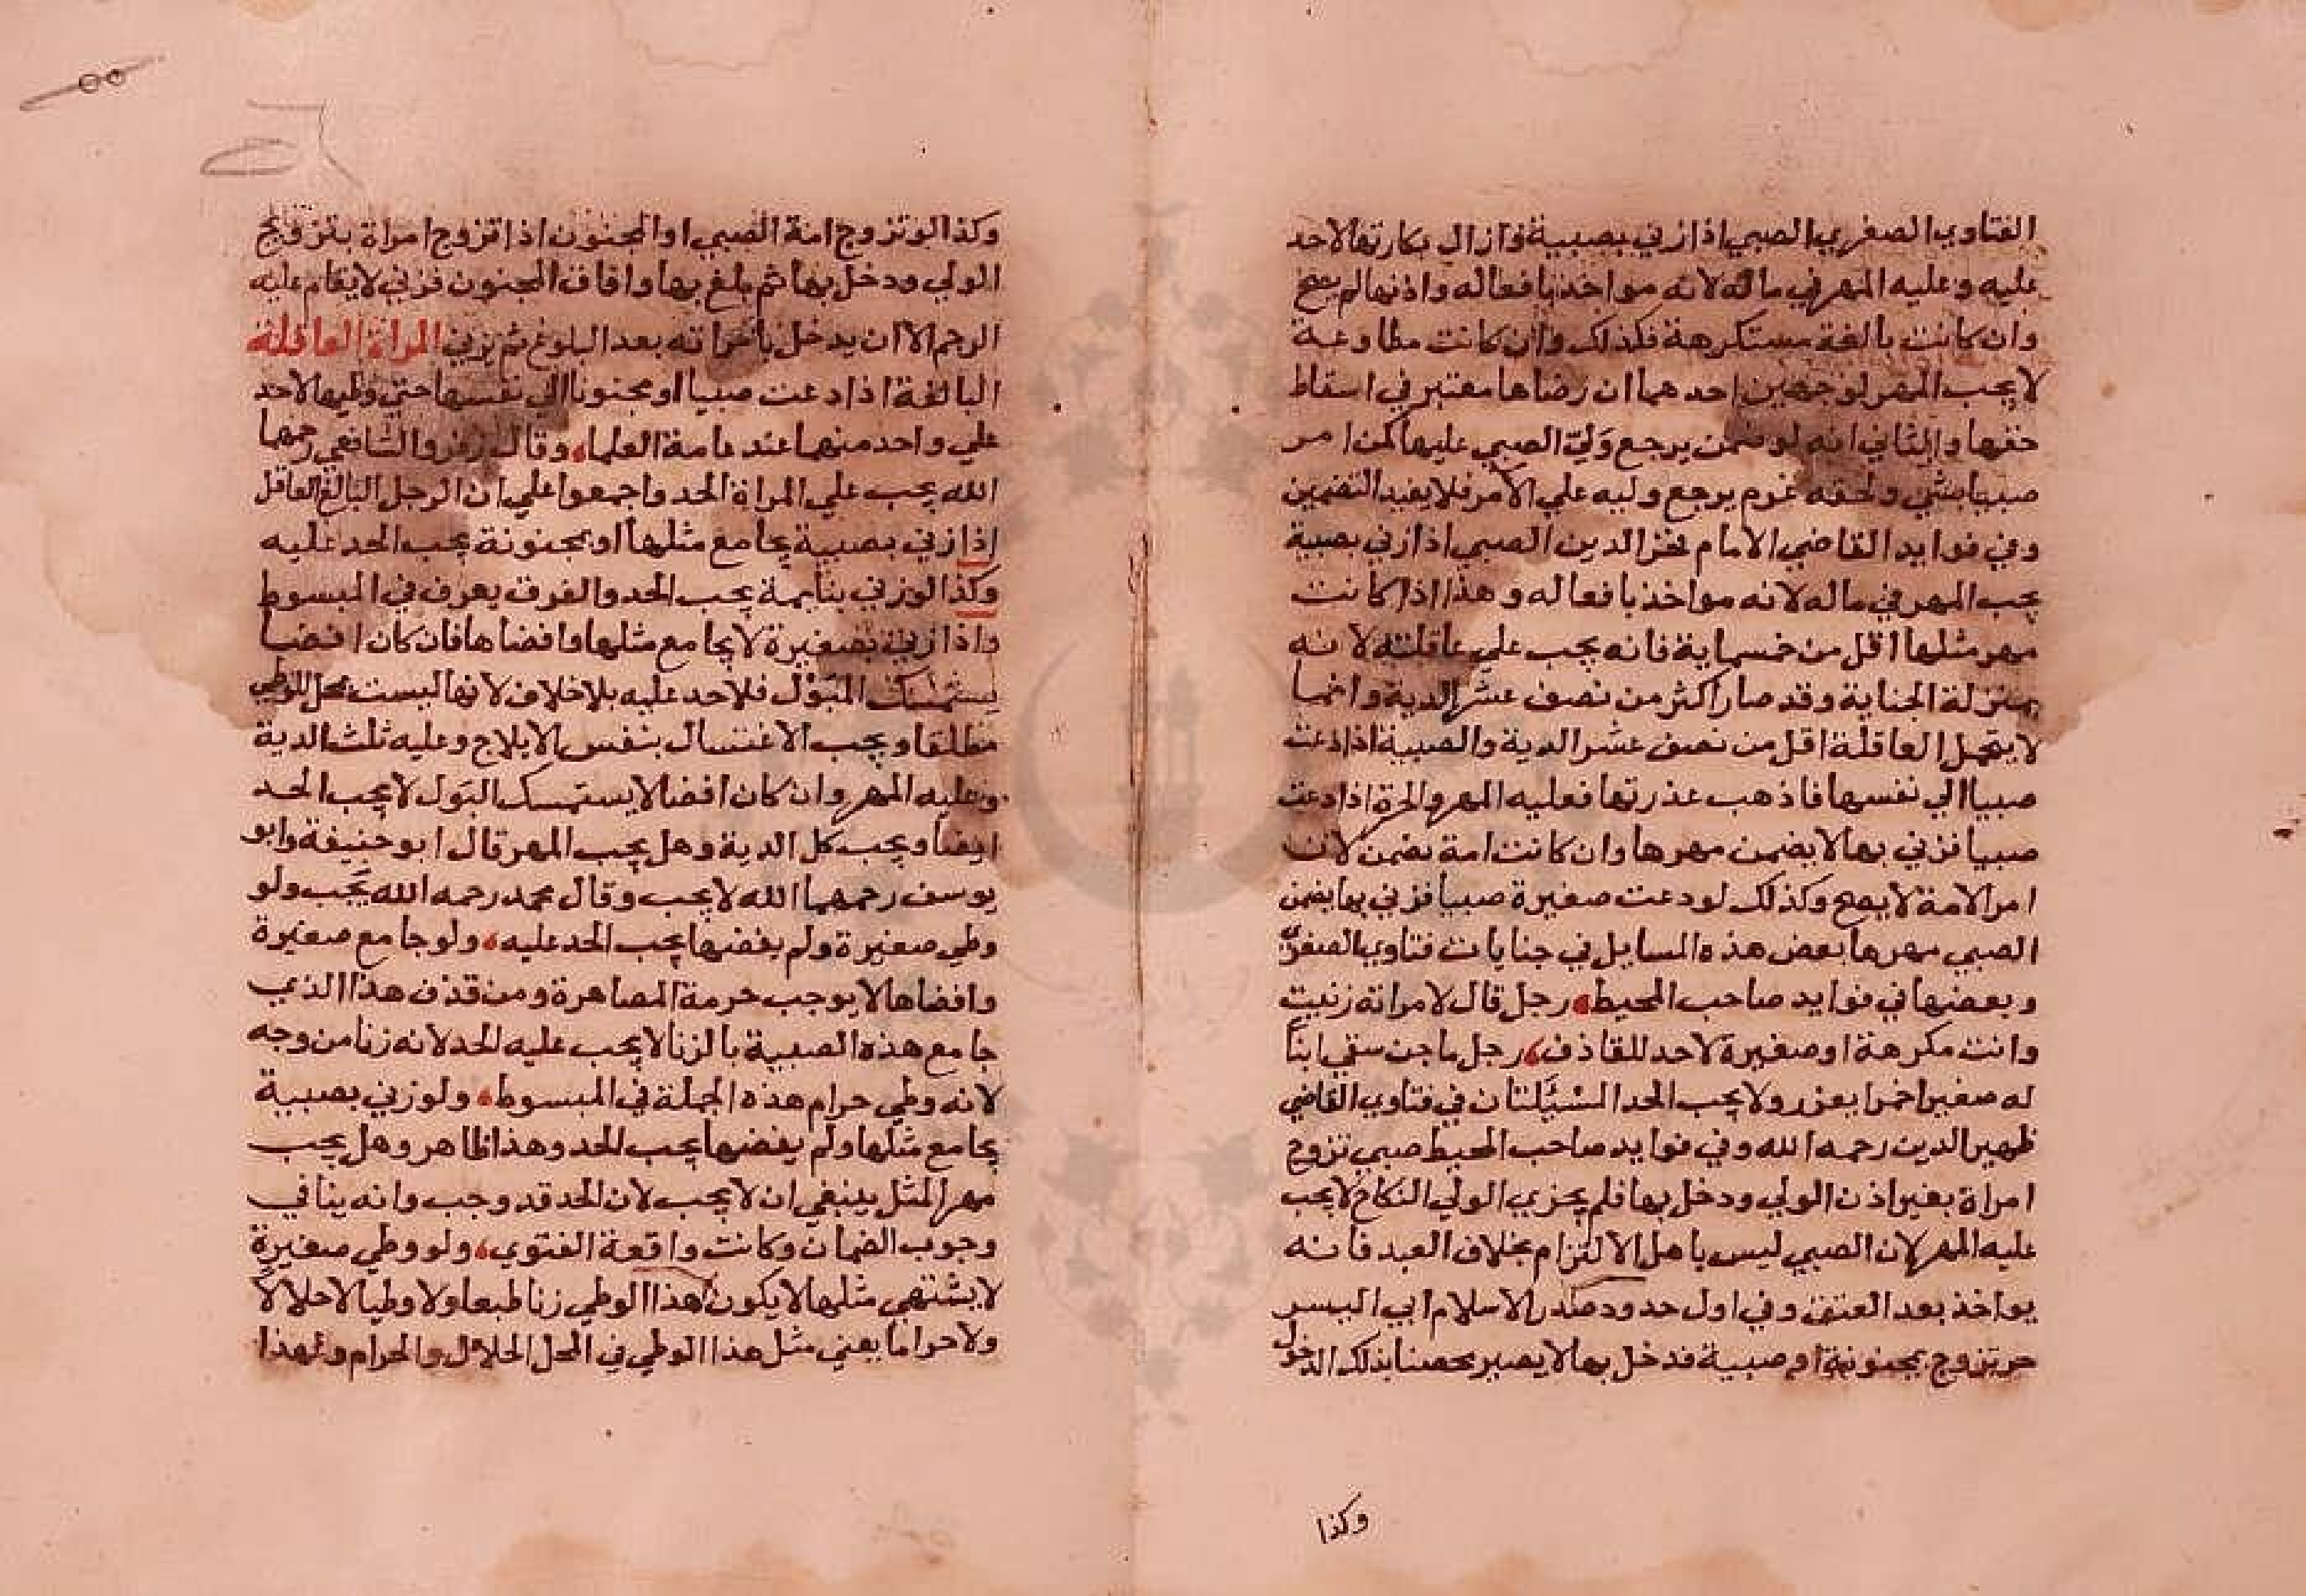 الفتاوي الصغري الصبي اذا زني بصبية وازال بكارتها لاحد
عليه وعليه المهر في ماله لانه مواخذ بافعاله واذنها لم يصح
وان كانت بالغة مستكرهة فكذلك وان كانت مطاوعة
لا يجب المهر لوجهين احدهما ان رضاها معتبر في اسقاط
حقها والثاني انه لو ضمن يرجع وَليّ الصبي عليها كمن امر
صبيا بشي ولحقه غرم يرجع وليه علي الآمر فلا يفيد التضمين
وفي فوايد القاضي الامام فخر الدين الصبي اذا زني بصبية
يجب المهر في ماله لانه مواخذ بافعاله وهذا اذا كانت
مهر مثلها اقل من خمسماية فانه يجب علي عاقلته لانه
بمنزلة الجناية وقد صار اكثر من نصف عشر الدية وانما
لا يتحمل العاقلة اقل من نصف عشر الدية والصبية اذا دعت
صبيا الي نفسها فاذهب عذرتها فعليه المهر والحرة اذا دعت
صبيا فزني بها لا يضمن مهرها وان كانت امة يضمن لان
امر الامة لا يصح وكذلك لو دعت صغيرة صبيا فزني بها يضمن
الصبي مهرها بعض هذه المسايل في جنايات فتاوي الصغرى
وبعضها في فوايد صاحب المحيط رجل قال لامراته زنيت
وانت مكرهة او صغيرة لاحد للقاذف رجل ماجن سقي ابنا
له صغيرا خمرا يعزر ولا يجب الحد السئلتان في فتاوي القاضي
ظهير الدين رحمه الله وفي فوايد صاحب المحيط صبي تزوج
امراة بغير اذن الولي ودخل بها فلم يجزي الولي النكاح لا يجب
عليه المهر لان الصبي ليس باهل الالتزام بخلاف العبد فانه
يواخذ بعد العتق وفي اول حدود صدر الاسلام ابي اليسر
حر تزوج بمجنونة او صبية فدخل بها لا يصير محصنا بذلك الدخول
وكذا
وكذا لو تزوج امة الصبي او المجنون اذا تزوج امراة بتزويج
الولي ودخل بها ثم بلغ بها وافاق المجنون فزني لا يقام عليه
الرجم الا ان يدخل بامراته بعد البلوغ ثم يزني المراة العاقلة
البالغة اذا دعت صبيا او مجنونا الي نفسها حتي وطيها لاحد
علي واحد منهما عند عامة العلما وقال زفر والشافعي رحمهما
الله يجب علي المراة الحد واجمعوا علي ان الرجل البالغ العاقل
اذا زني بصبية يجامع مثلها او بمجنونة يجب الحد عليه
وكذا لو زني بنايمة يجب الحد والفرق يعرف في المبسوط
واذا زني بصغيرة لا يجامع مثلها وافضاها فان كان افضا
يستمسك البَوْل فلا حد عليه بلا خلاف لانها ليست محل للوطي
مطلقا ويجب الاغتسال بنفس الايلاج وعليه ثلث الدية
وعليه المهر وان كان افضا لا يستمسك البَول لا يجب الحد
ايضا ويجب كل الدية وهل يجب المهر قال ابو حنيفة وابو
يوسف رحمهما الله لا يجب وقال محمد رحمه الله يجب ولو
وطي صغيرة ولم يفضها يجب الحد عليه ولو جامع صغيرة
وافضاها لا يوجب حرمة المصاهرة ومن قذف هذا الذي
جامع هذه الصبية بالزنا لا يجب عليه الحد لانه زنا من وجه
لانه وطي حرام هذه الجملة في المبسوط ولو زني بصبية
يجامع مثلها ولم يفضها يجب الحد وهذا ظاهر وهل يجب
مهر المثل ينبغي ان لا يجب لان الحد قد وجب وانه ينافي
وجوب الضمان وكانت واقعة الفتوي ولو وطي صغيرة
لا يشتهي مثلها لا يكون هذا الوطي زنا طبعا ولا وطيا لا حلالا
ولا حراما يعني مثل هذا الوطي في المحل الحلال والحرام ولهذا